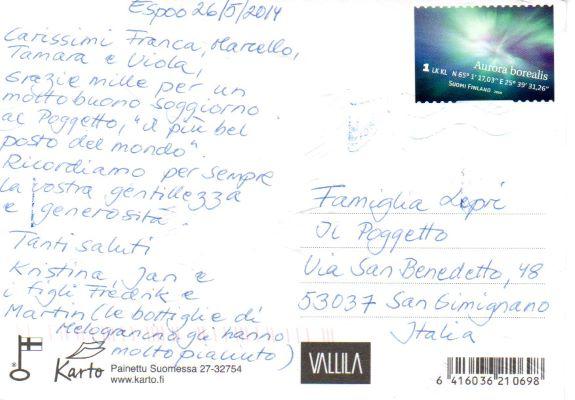 Espoo 26/5/2014
Carissimi Franca, Marcello,
Tamara e Viola,
Grazie mille per un
molto buono soggiorno
al Poggetto, "il più bel
posto del mondo".
Ricordiamo per sempre
la vostra gentillezza
e generosità.
Tanti saluti
Kristina, Jan e
i figli Fredrik e
Martin (le bottiglie di
Melogranino gli hanno
molto piaciuto)
Aurora borealis
1 LK KL N 65° 1' 17,03" E 25° 39' 31,26"
SUOMI FINLAND
Famiglia Lepri
Il Poggetto
Via San Benedetto, 48
53037 San Gimignano
Italia
Karto
Painettu Suomessa 27-32754
www.karto.fi
VALLILA
6 416036 210698